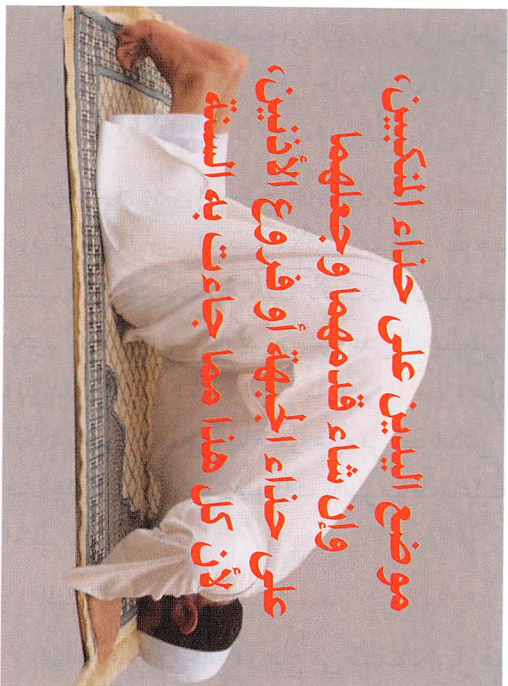 موضع اليدين على حذاء المنكبين،
وإن شاء قدمهما وجعلهما
على حذاء الجبهة أو فروع الأذنين،
لأن كل هذا مما جاءت به السنة